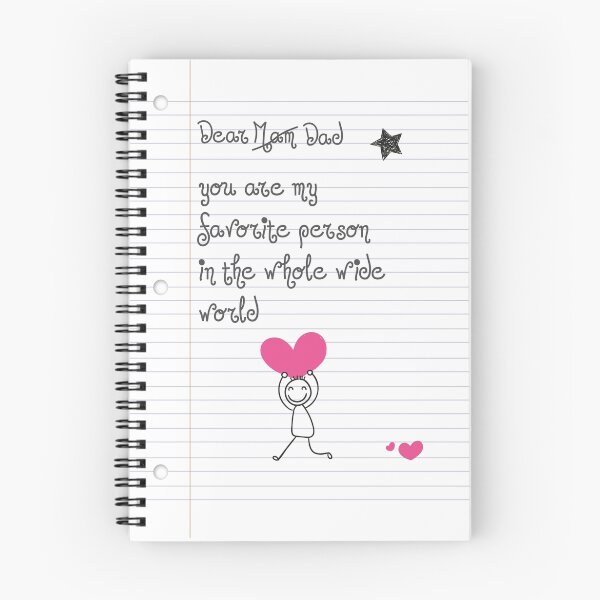 Dear Mam Dad
you are my
favorite person
in the whole wide
world